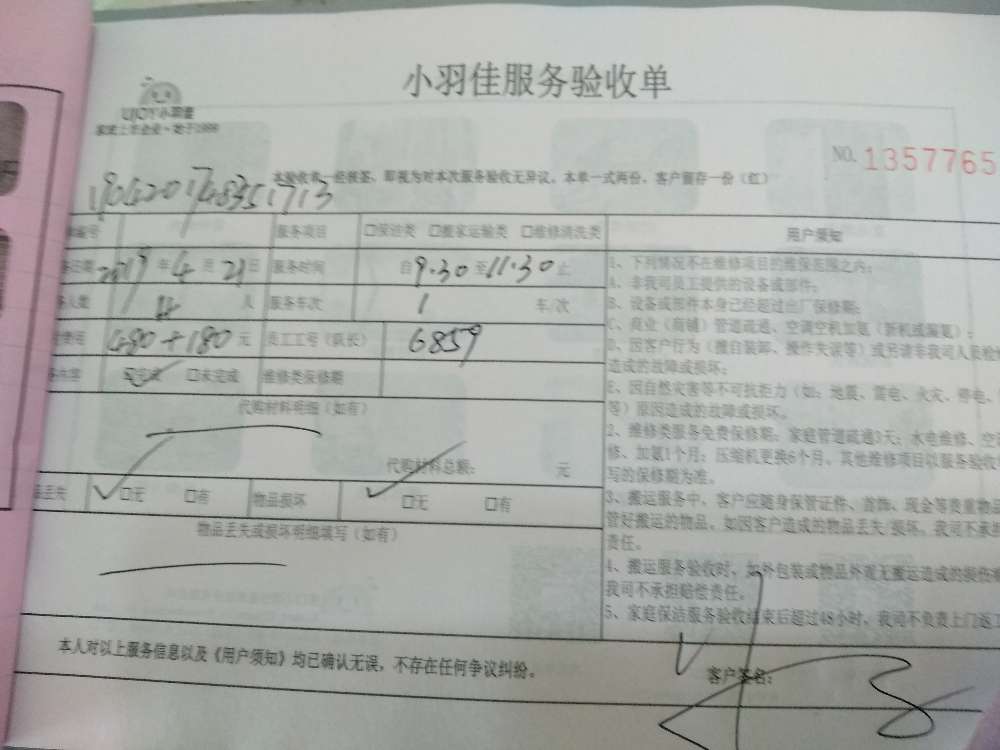 小羽佳服务验收单
UJOY小羽佳
家政上市企业·始于1999
NO. 1357765
本验收单一经核签，即视为对本次服务验收无异议，本单一式两份，客户留存一份（红）
1904201748351713
编号 服务项目 □保洁类 □搬家运输类 □维修清洗类 用户须知
日期 2019年4月21日 服务时间 自9.30至11.30止
人数 4人 服务车次 1 车/次
费用 480+180元 员工工号（队长） 6859
完成 □未完成 维修类保修期
代购材料明细（如有）
代购材料总额： 元
丢失 □无 □有 物品损坏 □无 □有
物品丢失或损坏明细填写（如有）
1、下列情况不在维修项目的维保范围之内：
A、非我司员工提供的设备或部件；
B、设备或部件本身已经超过出厂保修期；
C、商业（商铺）管道疏通、空调空机加氨（新机或漏氨）；
D、因客户行为（擅自装卸、操作失误等）或另请非我司人员检
造成的故障或损坏；
E、因自然灾害等不可抗拒力（如：地震、雷电、火灾、停电、
等）原因造成的故障或损坏。
2、维修类服务免费保修期：家庭管道疏通3天；水电维修、空
修、加氨1个月；压缩机更换6个月，其他维修项目以服务验收
写的保修期为准。
3、搬运服务中，客户应随身保管证件、首饰、现金等贵重物品
管好搬运的物品，如因客户造成的物品丢失/损坏，我司不承
责任。
4、搬运服务验收时，如外包装或物品外观无搬运造成的损伤
我司不承担赔偿责任。
5、家庭保洁服务验收结束后超过48小时，我司不负责上门返工
本人对以上服务信息以及《用户须知》均已确认无误，不存在任何争议纠纷。
客户签名：